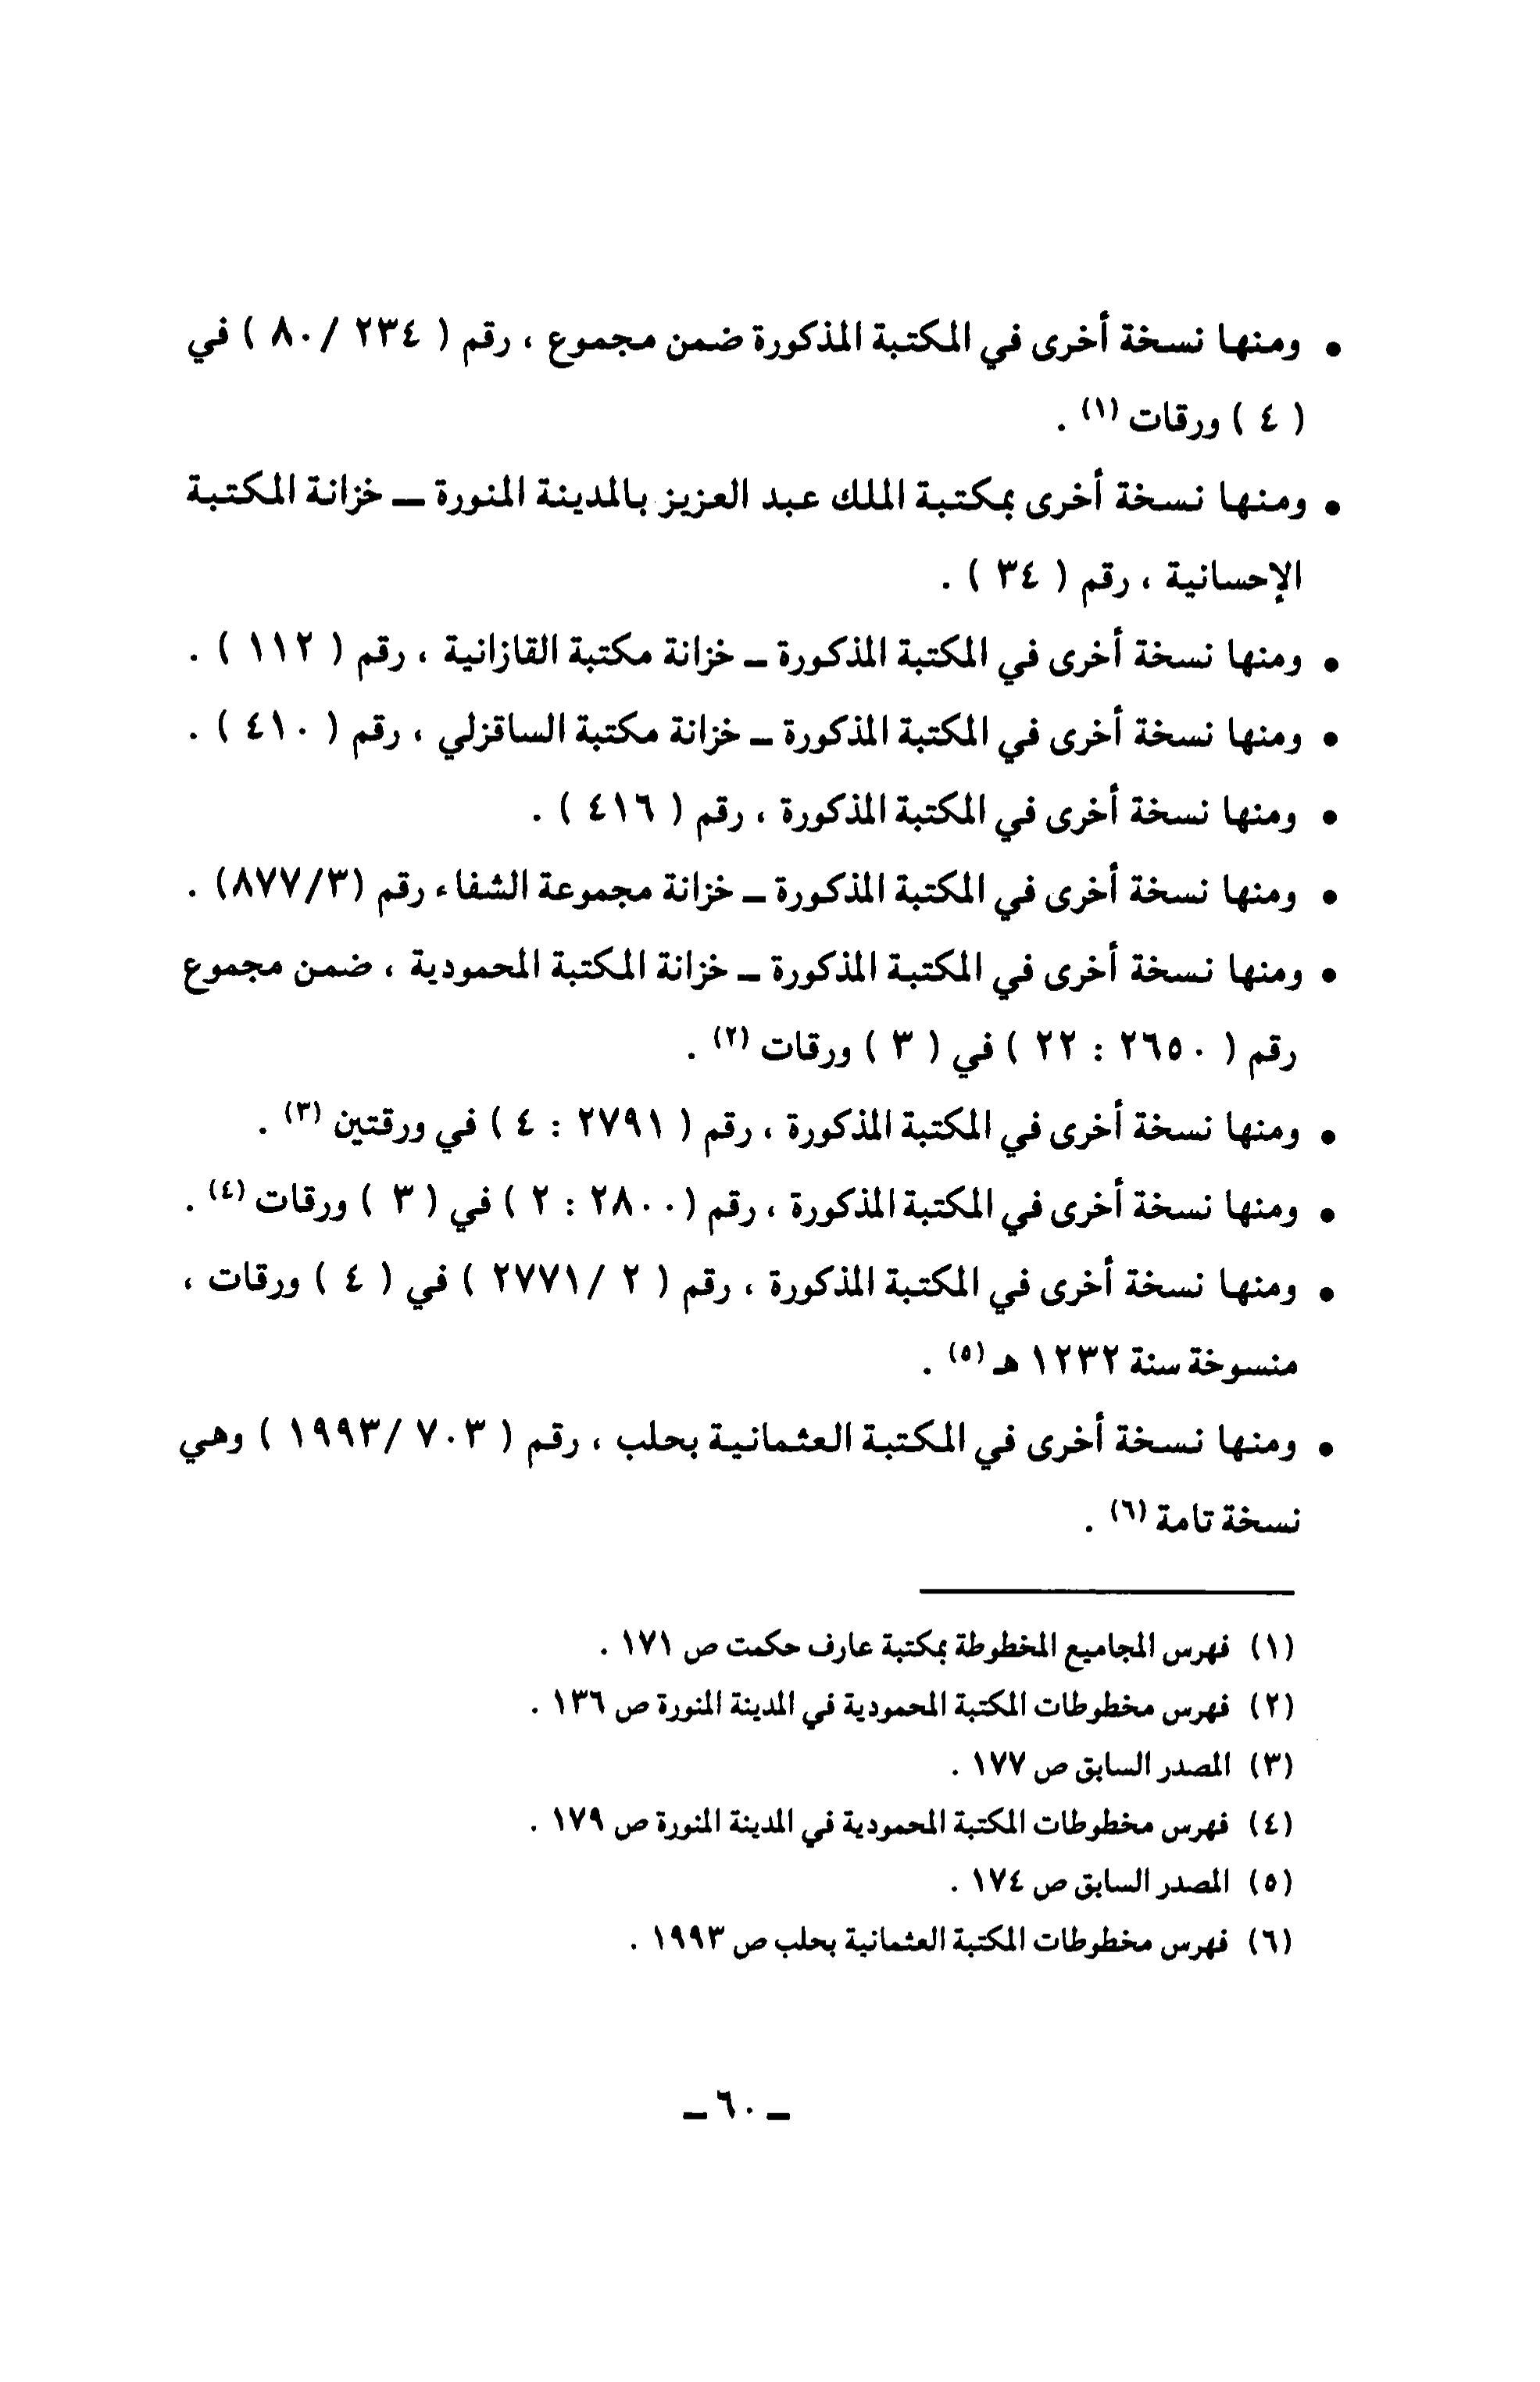 • ومنها نسخة أخرى في المكتبة المذكورة ضمن مجموع ، رقم ( ٢٣٤ /٨٠ ) في
( ٤ ) ورقات (١) .
• ومنها نسخة أخرى بمكتبة الملك عبد العزيز بالمدينة المنورة ــ خزانة المكتبة
الإحسانية ، رقم ( ٣٤ ) .
• ومنها نسخة أخرى في المكتبة المذكورة ــ خزانة مكتبة القازانية ، رقم ( ١١٢ ) .
• ومنها نسخة أخرى في المكتبة المذكورة ــ خزانة مكتبة الساقزلي ، رقم ( ٤١٠ ) .
• ومنها نسخة أخرى في المكتبة المذكورة ، رقم ( ٤١٦ ) .
• ومنها نسخة أخرى في المكتبة المذكورة ــ خزانة مجموعة الشفاء رقم (٨٧٧/٣) .
• ومنها نسخة أخرى في المكتبة المذكورة ــ خزانة المكتبة المحمودية ، ضمن مجموع
رقم ( ٢٦٥٠ : ٢٢ ) في ( ٣ ) ورقات (٢) .
• ومنها نسخة أخرى في المكتبة المذكورة ، رقم ( ٢٧٩١ : ٤ ) في ورقتين (٣) .
• ومنها نسخة أخرى في المكتبة المذكورة ، رقم (٢٨٠٠ : ٢ ) في ( ٣ ) ورقات (٤) .
• ومنها نسخة أخرى في المكتبة المذكورة ، رقم ( ٢ /٢٧٧١ ) في ( ٤ ) ورقات ،
منسوخة سنة ١٢٣٢ هـ (٥) .
• ومنها نسخة أخرى في المكتبة العثمانية بحلب ، رقم ( ٧٠٣ /١٩٩٣ ) وهي
نسخة تامة (٦) .
(١) فهرس المجاميع المخطوطة بمكتبة عارف حكمت ص ١٧١ .
(٢) فهرس مخطوطات المكتبة المحمودية في المدينة المنورة ص ١٣٦ .
(٣) المصدر السابق ص ١٧٧ .
(٤) فهرس مخطوطات المكتبة المحمودية في المدينة المنورة ص ١٧٩ .
(٥) المصدر السابق ص ١٧٤ .
(٦) فهرس مخطوطات المكتبة العثمانية بحلب ص ١٩٩٣ .
ــ ٦٠ ــ